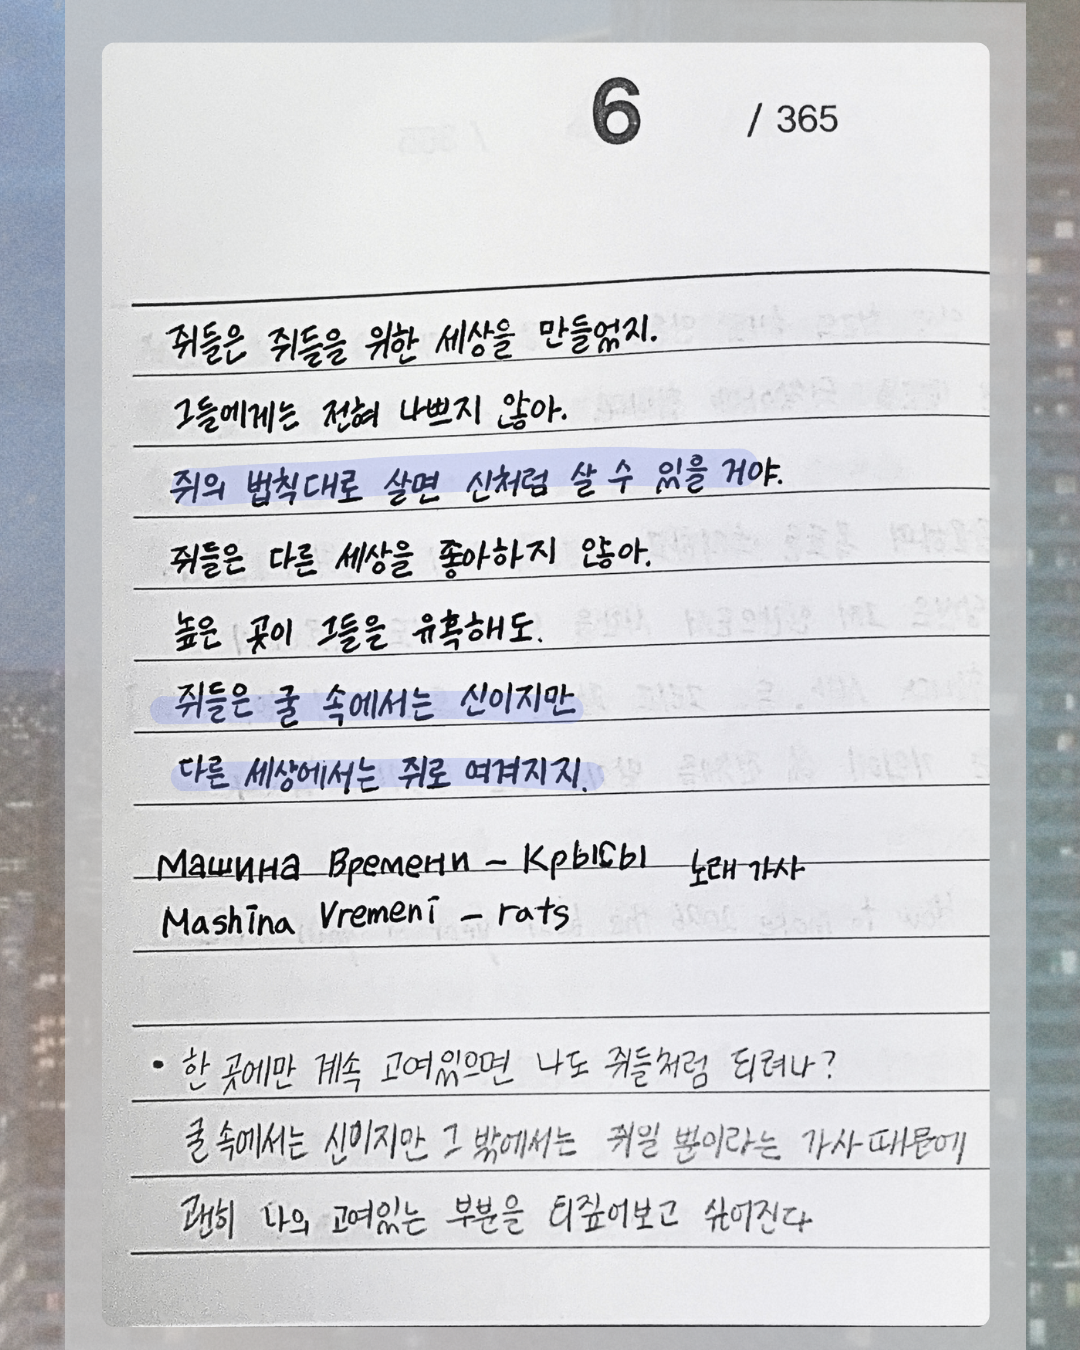 6 / 365
쥐들은 쥐들을 위한 세상을 만들었지.
그들에게는 전혀 나쁘지 않아.
쥐의 법칙대로 살면 신처럼 살 수 있을 거야.
쥐들은 다른 세상을 좋아하지 않아.
높은 곳이 그들을 유혹해도.
쥐들은 굴 속에서는 신이지만
다른 세상에서는 쥐로 여겨지지.
Машина Времени - Крысы 노래 가사
Mashina Vremeni - rats
• 한 곳에만 계속 고여있으면 나도 쥐들처럼 되려나?
굴 속에서는 신이지만 그 밖에서는 쥐일 뿐이라는 가사 때문에
괜히 나의 고여있는 부분을 되짚어보고 싶어진다